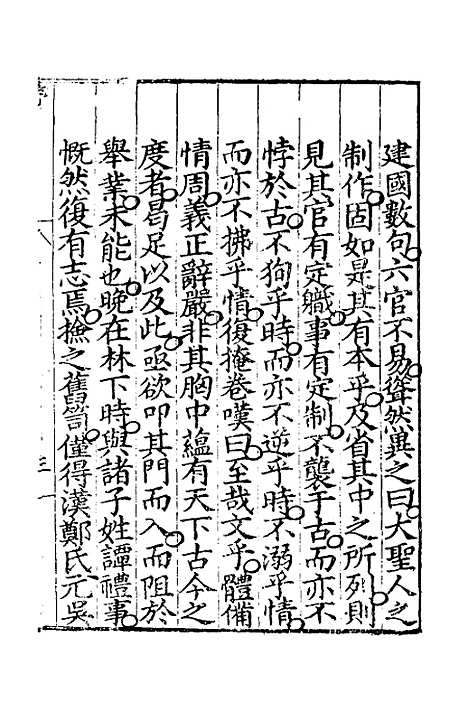 建國數句六官不易聳然異之曰大聖人之
制作固如是其有本乎及省其中之所列則
見其官有定職事有定制不襲于古而亦不
悖於古不狥乎時而亦不逆乎時不溺乎情
而亦不拂乎情復掩卷嘆曰至哉文乎體備
情周義正辭嚴非其胸中蘊有天下古今之
度者曷足以及此亟欲叩其門而入而阻於
舉業未能也晚在林下時與諸子姓譚禮事
慨然復有志焉撿之舊笥僅得漢鄭氏元吳